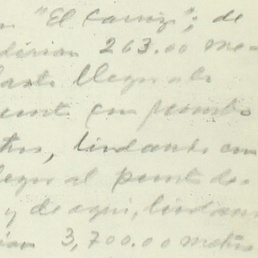 "El Carrizo"; de
263.00 me
hasta llegar al
con rumbo
lindando con
llegar al punto de
y de aquí, lindan
3,700.00 metros